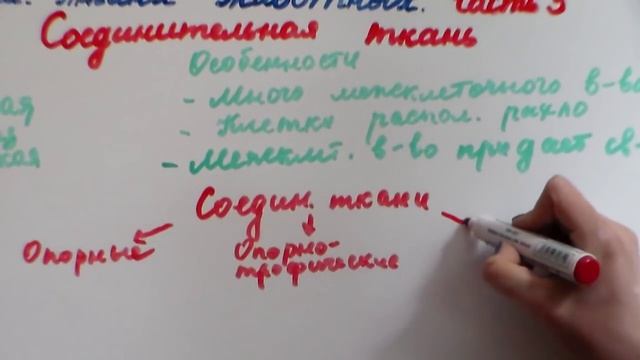 ткани животных. Часть 3
Соединительная ткань
Особенности
- Много межклеточного в-ва
- Клетки распол. рыхло
- Межклт. в-во придаёт св-
Соедин. ткани
Опорные
Опорно-
трофические